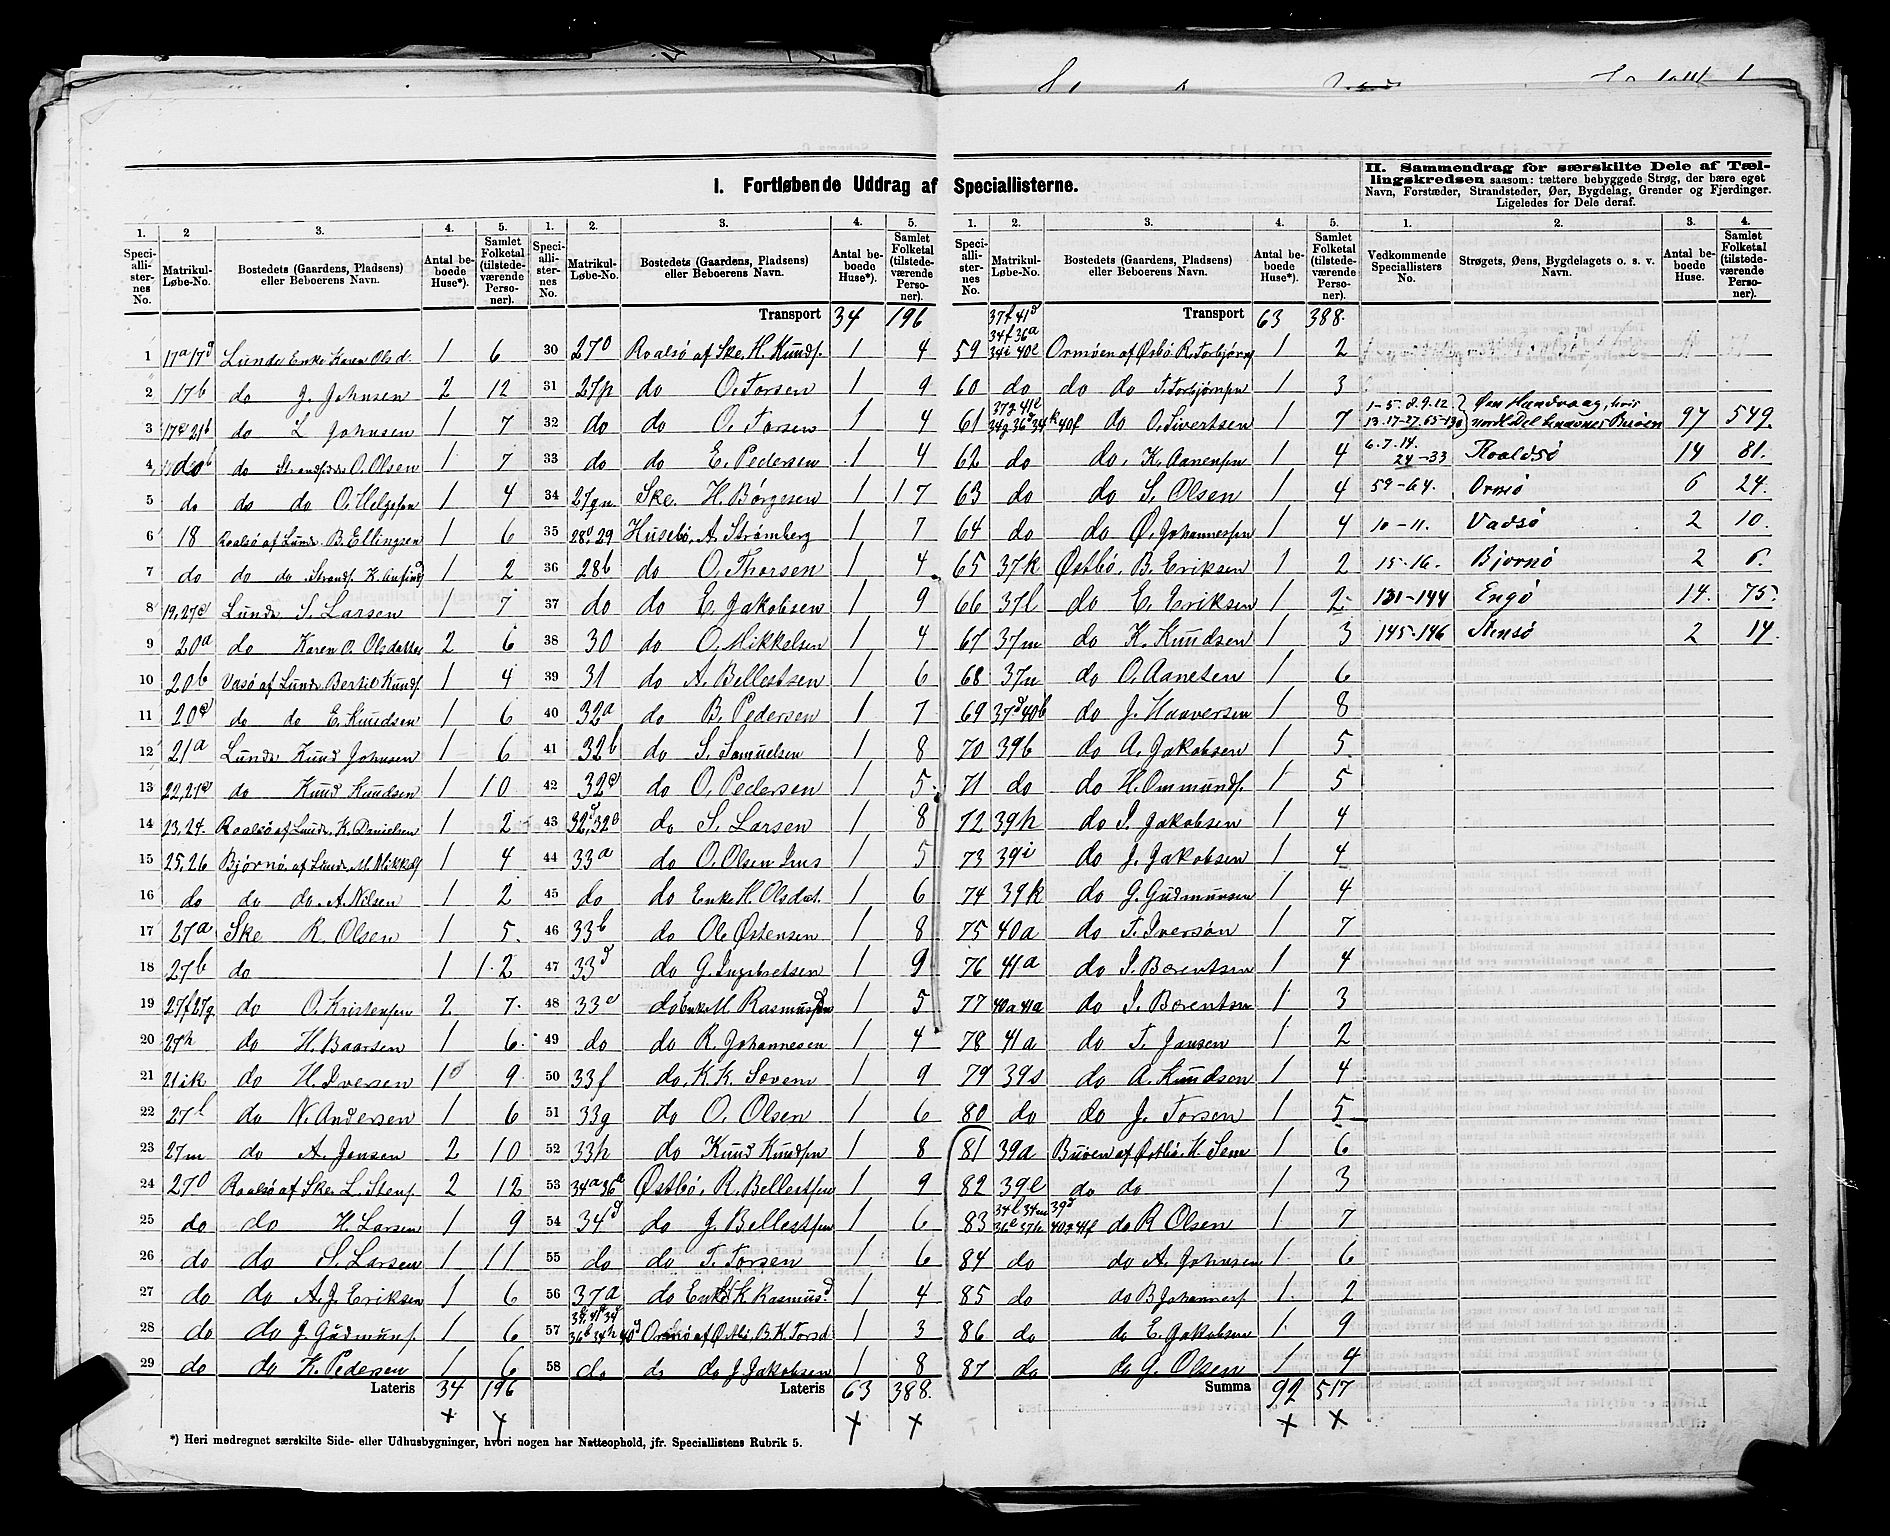 I. Fortløbende Uddrag af Speciallisterne.
II. Sammendrag for særskilte Dele af Tæl-
lingskredsen saasom: tættere bebyggede Strøg, der bære eget
Navn, Forstæder, Strandsteder, Øer, Bygdelag, Grender og Fjerdinger.
Ligeledes for Dele deraf.
1. 2 3. 4. 5. 1. 2. 3. 4. 5. 1. 2. 3. 4. 5. 1. 2. 3. 4.
Speci-allisternes No. Matrikul-Løbe-No. Bostedets (Gaardens, Pladsens) eller Beboerens Navn. Antal beboede Huse*). Samlet Folketal (tilstedeværende Personer).
Speciallisternes No. Matrikul-Løbe-No. Bostedets (Gaardens, Pladsens) eller Beboerens Navn. Antal beboede Huse*). Samlet Folketal (tilstedeværende Personer).
Speciallisternes No. Matrikul-Løbe-No. Bostedets (Gaardens, Pladsens) eller Beboerens Navn. Antal beboede Huse*). Samlet Folketal (tilstedeværende Personer).
Vedkommende Speciallisters No. Strøgets, Øens, Bygdelagets o. s. v. Navn. Antal beboede Huse. Samlet Folketal (tilstedeværende Personer).
1 17a 17d Lunde Enke Karen Olsd. 1 6
2 17b do J. Johnsen 2 12
3 17c 21b do L Johnsen 1 7
4 do do O. Olsen 1 7
5 do do do O. Helgesen 1 4
6 18 Roalsø af Lunde B. Ellingsen 1 6
7 do do do Strandf. K. 1 2
8 19, 27c Lunde S. Larsen 1 7
9 20a do Karen O. Olsdatter 2 6
10 20b Vasø af Lunde Bertel Knuds. 1 4
11 20c do do E. Knudsen 1 6
12 21a Lunde Knud Johnsen 1 6
13 22, 21c do Knud Knudsen 1 10
14 23, 24. Roalsø af Lunde K. Danielsen 1 2
15 25, 26 Bjørnø af Lunde M. Mikkels 1 4
16 do do do A. Nilsen 1 2
17 27a Ske R. Olsen 1 5
18 27b do 1 12
19 27f 27g do O. Kristensen 2 7
20 27h do H. Baarsen 1 6
21 21ik do H. Iversen 1 9
22 27l do N. Andersen 1 6
23 27m do A. Jensen 2 10
24 27o Roalsø af Ske L. Stens. 2 12
25 do do H. Larsen 1 9
26 do do S. Larsen 1 11
27 do do A. J. Eriksen 1 6
28 do do J. Gudmuns. 1 6
29 do do K. Pedersen 1 6
Lateris 34 196
Transport 34 196
30 27o Roalsø af Ske, H. Knuds. 1 4
31 27p do O. Torsen 1 9
32 do do O. Torsen 1 4
33 do do E. Pedersen 1 4
34 27qn Ske H. Børgesen 1 17
35 28a 29 Husebø, A Strømberg 1 7
36 28b do O. Thorsen 1 4
37 do do E. Jakobsen 1 9
38 30 do O. Mikkelsen 1 4
39 31 do A. Bellestsen 1 6
40 32a do B. Pedersen 1 7
41 32b do S. Samuelsen 1 8
42 32c do O. Pedersen 1 5
43 32d, 32e do S. Larsen 1 8
44 33a do O. Olsen Ims 1 5
45 do do Enke H. Olsdat. 1 6
46 33b do Ole Østensen 1 8
47 33d do G. Ingebretsen 1 9
48 33e do Enke M. Rasmusen 1 5
49 do do R. Johannesen 1 4
50 33f do. K. K. Sevem 1 9
51 33g do O. Olsen 1 6
52 33h do Knud Knudsen 1 8
53 34a 36a Østbø, R. Bellestsen 1 9
54 34d do J. Bellestsen 1 6
55 do do T. Torsen 1 6
56 37a do Enke K Rasmusd 1 4
57 Ormø af Østbø, B. K. Torsd 1 3
58 do do do J. Jakobsen 1 8
Lateris 63 388.
Transport 63 388.
37f 41d
34f 36a
59 34i 40e Ormøen af Øsbø R. Torbjørns 1 2
60 do do do T. Torbjørnsen 1 3
61 37g 41e 34g 36d 34k 40f do O. Sivertsen 1 7
62 do do. K. Aanensen 1 4
63 do do S. Olsen 1 4
64 do do Ø. Johannesen 1 4
65 37k Østbø, B. Eriksen 1 2
66 37l do E. Eriksen 1 2
67 37m do K. Knudsen 1 3
68 37n do O. Aanesen 1 6
69 37d 40b do J. Haaversen 1 8
70 39b do A. Jakobsen 1 5
71 do do H. Ommunds. 1 5
72 39h do I. Jakobsen 1 4
73 39i do J. Jakobsen 1 4
74 39k do G. Gudmunsen 1 4
75 40a do T. Iversøn 1 7
76 41a do I. Børentsen 1 4
77 40a 41a do I. Børentsen 1 3
78 41a do T. Jansen 1 2
79 39s do A. Knudsen 1 4
80 do do J. Torsen 1 5
81 39a Buøen af Østbø K. Sem 1 6
82 39e do do 1 3
83 34l 34m 39d 36c 37h 40g 41f do R Olsen 1 7
84 do do A. Johnsen 1 6
85 do do B Johannes. 1 2
86 do do E. Jakobsen 1 9
87 do do G. Olsen 1 4
Summa 92 517
1-5. 8. 9. 12. 13. 17-27. 65-130 Øen Hundvaag, hvis nordl. Del benævnes Buøen 97 549.
6. 7. 14. 24-33 Roaldsø 14 81.
59-64. Ormø 6 24.
10-11. Vadsø 2 10.
15-16. Bjornø 2 6.
131-144 Engø 14. 75.
145-146 Stensø 2 14.
*) Heri medregnet særskilte Side- eller Udhusbygninger, hvori nogen har Natteophold, jfr. Speciallistens Rubrik 5.